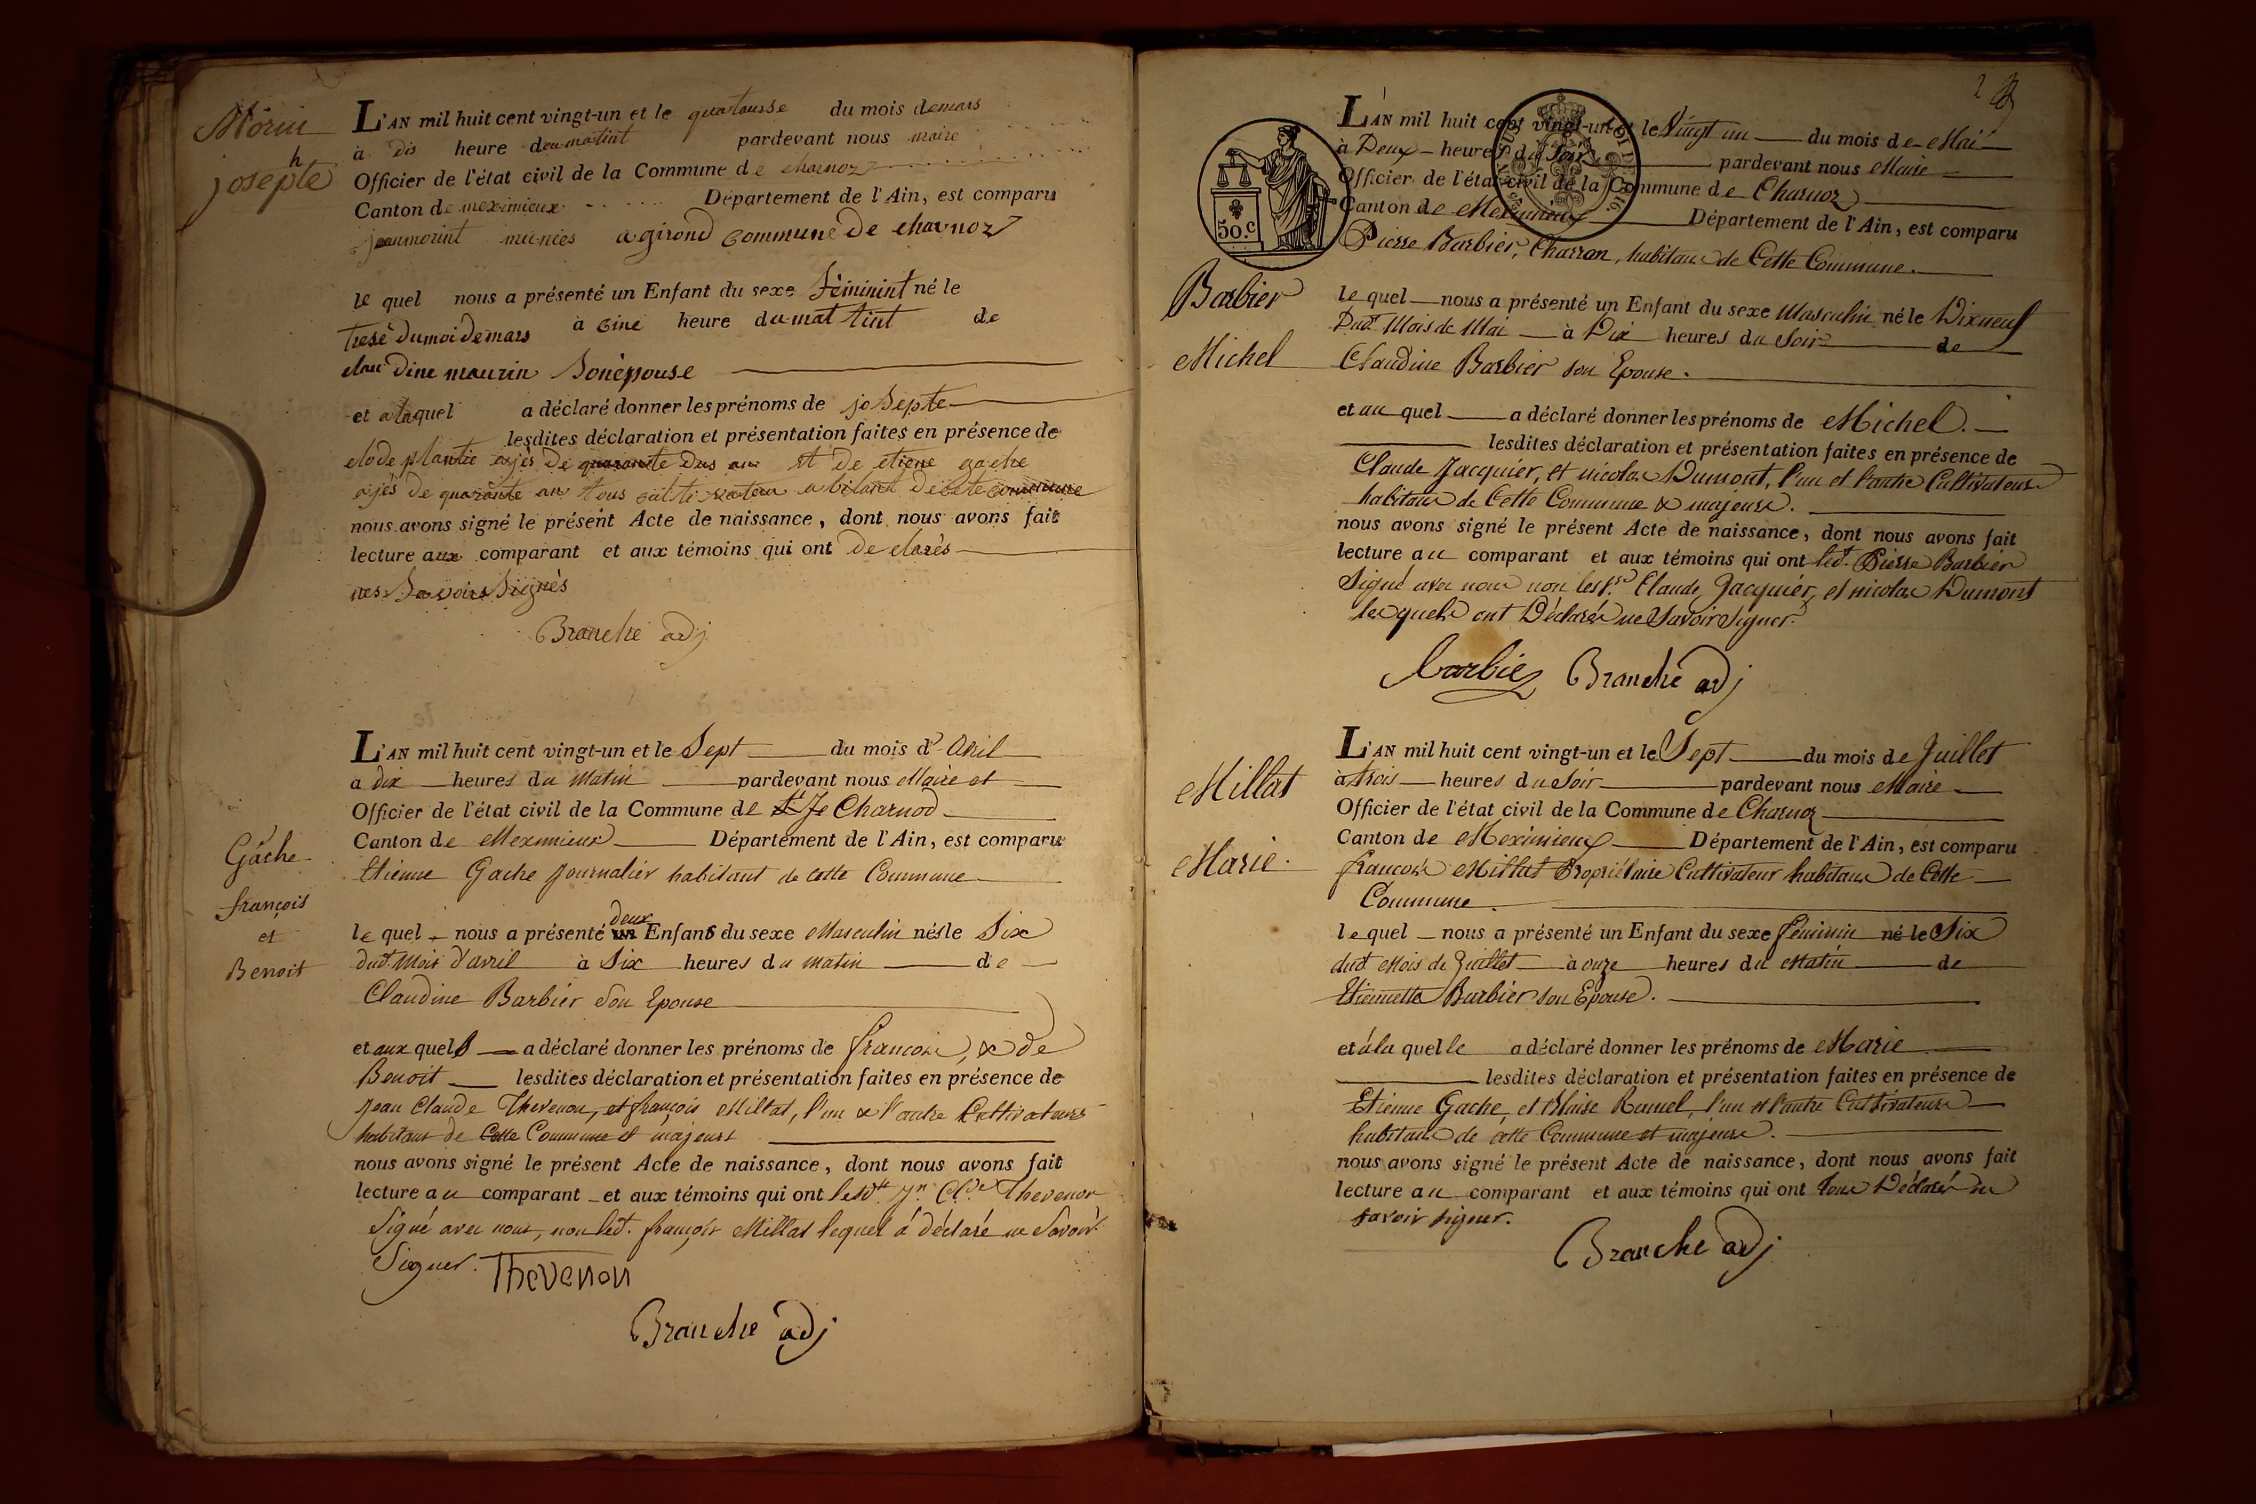 Morin
josephte
L'AN mil huit cent vingt-un et le quatousse du mois demars
à dis heure deumatint pardevant nous maire
Officier de l'état civil de la Commune de charnoz
Canton de meximieux Département de l'Ain, est comparu
jeanmorint a girond commune De charnoz
le quel nous a présenté un Enfant du sexe féminint né le
Tresé dumoi de mars à cinc heure du mattint de
claudine maurin Sonépouse
et alaquel a déclaré donner les prénoms de josepte
lesdites déclaration et présentation faites en présence de
clode plantie ajés De quarante dus an et de etiene gache
ajés de quarante an tous abitant de cete commune
nous avons signé le présent Acte de naissance, dont nous avons fait
lecture aux comparant et aux témoins qui ont de clarés
nes Savoirs Signés
Branche adj
Gâche
françois
et
Benoit
L'AN mil huit cent vingt-un et le Sept du mois d'avril
a dix heures du matin pardevant nous Maire et
Officier de l'état civil de la Commune de Charnod
Canton de Meximieux Département de l'Ain, est comparu
Etienne Gache journalier habitant de cette Commune
le quel nous a présenté deux Enfans du sexe Masculin nés le Six
dudt Mois d'avril à Six heures du matin de
Claudine Barbier Son Epouse
et aux quels a déclaré donner les prénoms de françois, & de
Benoit lesdites déclaration et présentation faites en présence de
Jean Claude Thevenon, et françois Millat, l'un & l'autre Cultivateurs
habitans de Cette Commune et majeurs
nous avons signé le présent Acte de naissance, dont nous avons fait
lecture au comparant et aux témoins qui ont ledt Jn Cle Thevenon
Signé avec nous, non ledt françois Millat lequel a déclaré ne Savoir
Signer. Thevenon
Branche adj
L'AN mil huit cent vingt-un et le Vingt un du mois de Mai
à Deux heures du Soir pardevant nous Maire
Officier de l'état civil de la Commune de Charnoz
Canton de Meximieux Département de l'Ain, est comparu
Pierre Barbier, Charron, habitant de Cette Commune.
50.c
Barbier
Michel
le quel nous a présenté un Enfant du sexe Masculin né le Dixneuf
Dudt Mois de Mai à Dix heures du Soir de
Claudine Barbier son Epouse.
et au quel a déclaré donner les prénoms de Michel.
lesdites déclaration et présentation faites en présence de
Claude Jacquier, et nicolas Dumont, l'un et l'autre Cultivateurs
habitans de Cette Commune & majeurs.
nous avons signé le présent Acte de naissance, dont nous avons fait
lecture au comparant et aux témoins qui ont ledt Pierre Barbier
Signé avec nous non les Claude Jacquier, et nicolas Dumont
lesquels ont Déclarés ne Savoir Signer.
barbier Branche adj
Millat
Marie.
L'AN mil huit cent vingt-un et le Sept du mois de Juillet
à trois heures du Soir pardevant nous Maire
Officier de l'état civil de la Commune de Charnoz
Canton de Meximieux Département de l'Ain, est comparu
françois Millat Propriétaire Cultivateur habitans de Cette
Commune.
lequel nous a présenté un Enfant du sexe féminin né le Six
dudt Mois de Juillet à onze heures du Matin de
Etiennette Barbier son Epouse.
et à la quelle a déclaré donner les prénoms de Marie
lesdites déclaration et présentation faites en présence de
Etienne Gache, et Blaise l'un et l'autre Cultivateurs
habitans de cette Commune et majeurs.
nous avons signé le présent Acte de naissance, dont nous avons fait
lecture au comparant et aux témoins qui ont tous Déclaré ne
savoir signer.
Branche adj